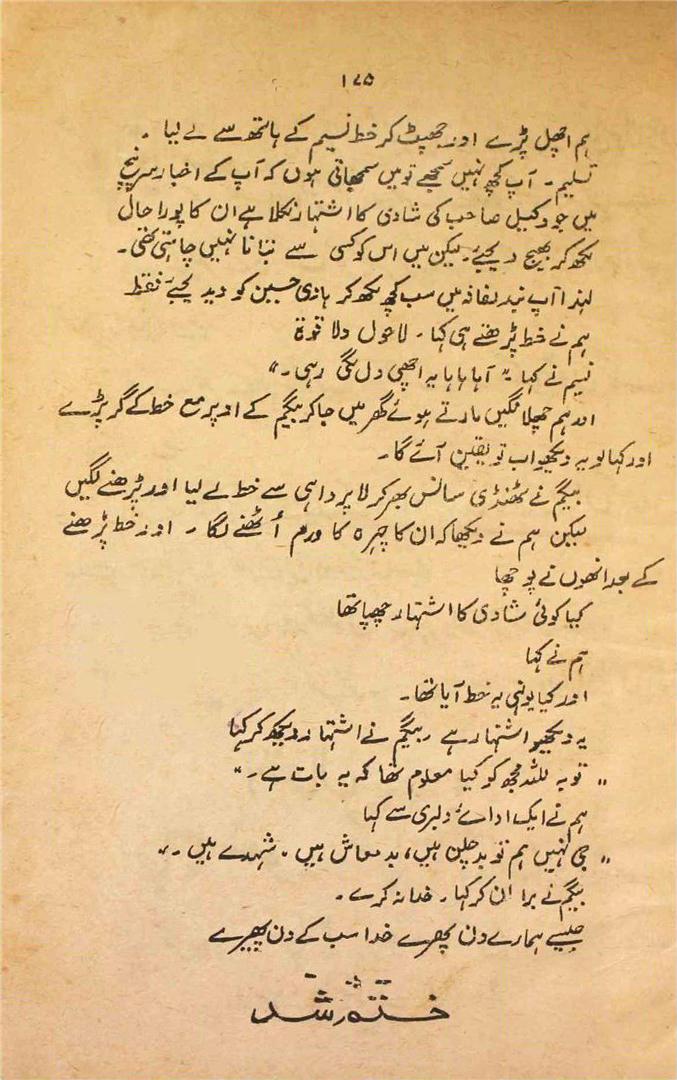 ۱۷۵
ہم اچھل پڑے اور جھپٹ کر خط نسیم کے ہاتھ سے لے لیا ۔
تسلیم ۔ آپ کچھ نہیں سمجھے تو میں سمجھاتی ہوں کہ آپ کے اخبار سرپنچ
میں جو وکیل صاحب کی شادی کا اشتہار نکلا ہے ان کا پورا حال
لکھ کر بھیج دیجئے۔ لیکن میں اس کو کسی سے بتانا نہیں چاہتی تھی۔
لہذا آپ بند لفافہ میں سب کچھ لکھ کر ہادی حسین کو دید یجئے فقط
ہم نے خط پڑھتے ہی کہا ۔ لاحول ولا قوۃ
نسیم نے کہا " آہاہاہا یہ اچھی دل لگی رہی ۔"
اور ہم چھلانگیں مارتے ہوئے گھر میں جا کر بیگم کے اوپر مع خط کے گر پڑے
اور کہا لو یہ دیکھو اب تو یقین آئے گا ۔
بیگم نے ٹھنڈی سانس بھر کر لاپرواہی سے خط لے لیا اور پڑھنے لگیں
لیکن ہم نے دیکھا کہ ان کا چہرہ کا ورم اُٹھنے لگا ۔ اور خط پڑھنے
کے بعد انھوں نے پوچھا
کیا کوئی شادی کا اشتہار چھپا تھا
ہم نے کہا
اور کیا یونہی یہ خط آیا تھا ۔
یہ دیکھیو اشتہار ہے ۔ بیگم نے اشتہار دیکھ کر کہا
" توبہ للہ مجھ کو کیا معلوم تھا کہ یہ بات ہے ۔"
ہم نے ایک ادائے دلبری سے کہا
" جی نہیں ہم تو بد چلن ہیں، بدمعاش ہیں ۔ شہدے ہیں ۔"
بیگم نے برا مان کر کہا ۔ خدا نہ کرے ۔
جیسے ہمارے دن پھرے خدا سب کے دن پھیرے
ختم شد